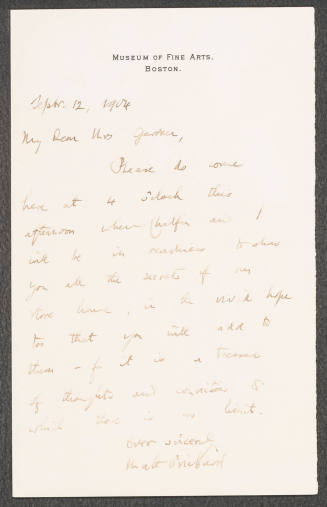 MUSEUM OF FINE ARTS.
BOSTON.
Septr. 12, 1904
My Dear Mrs Gardner,
Please do come
here at 4 o'clock this
afternoon when and I
will be in readiness to show
you all the secrets of our
store house, in the vivid hope
too that you will add to
them - for it is a treasure
of thoughts and to
which there is no limit.
ever sincerely
Matt Prichard